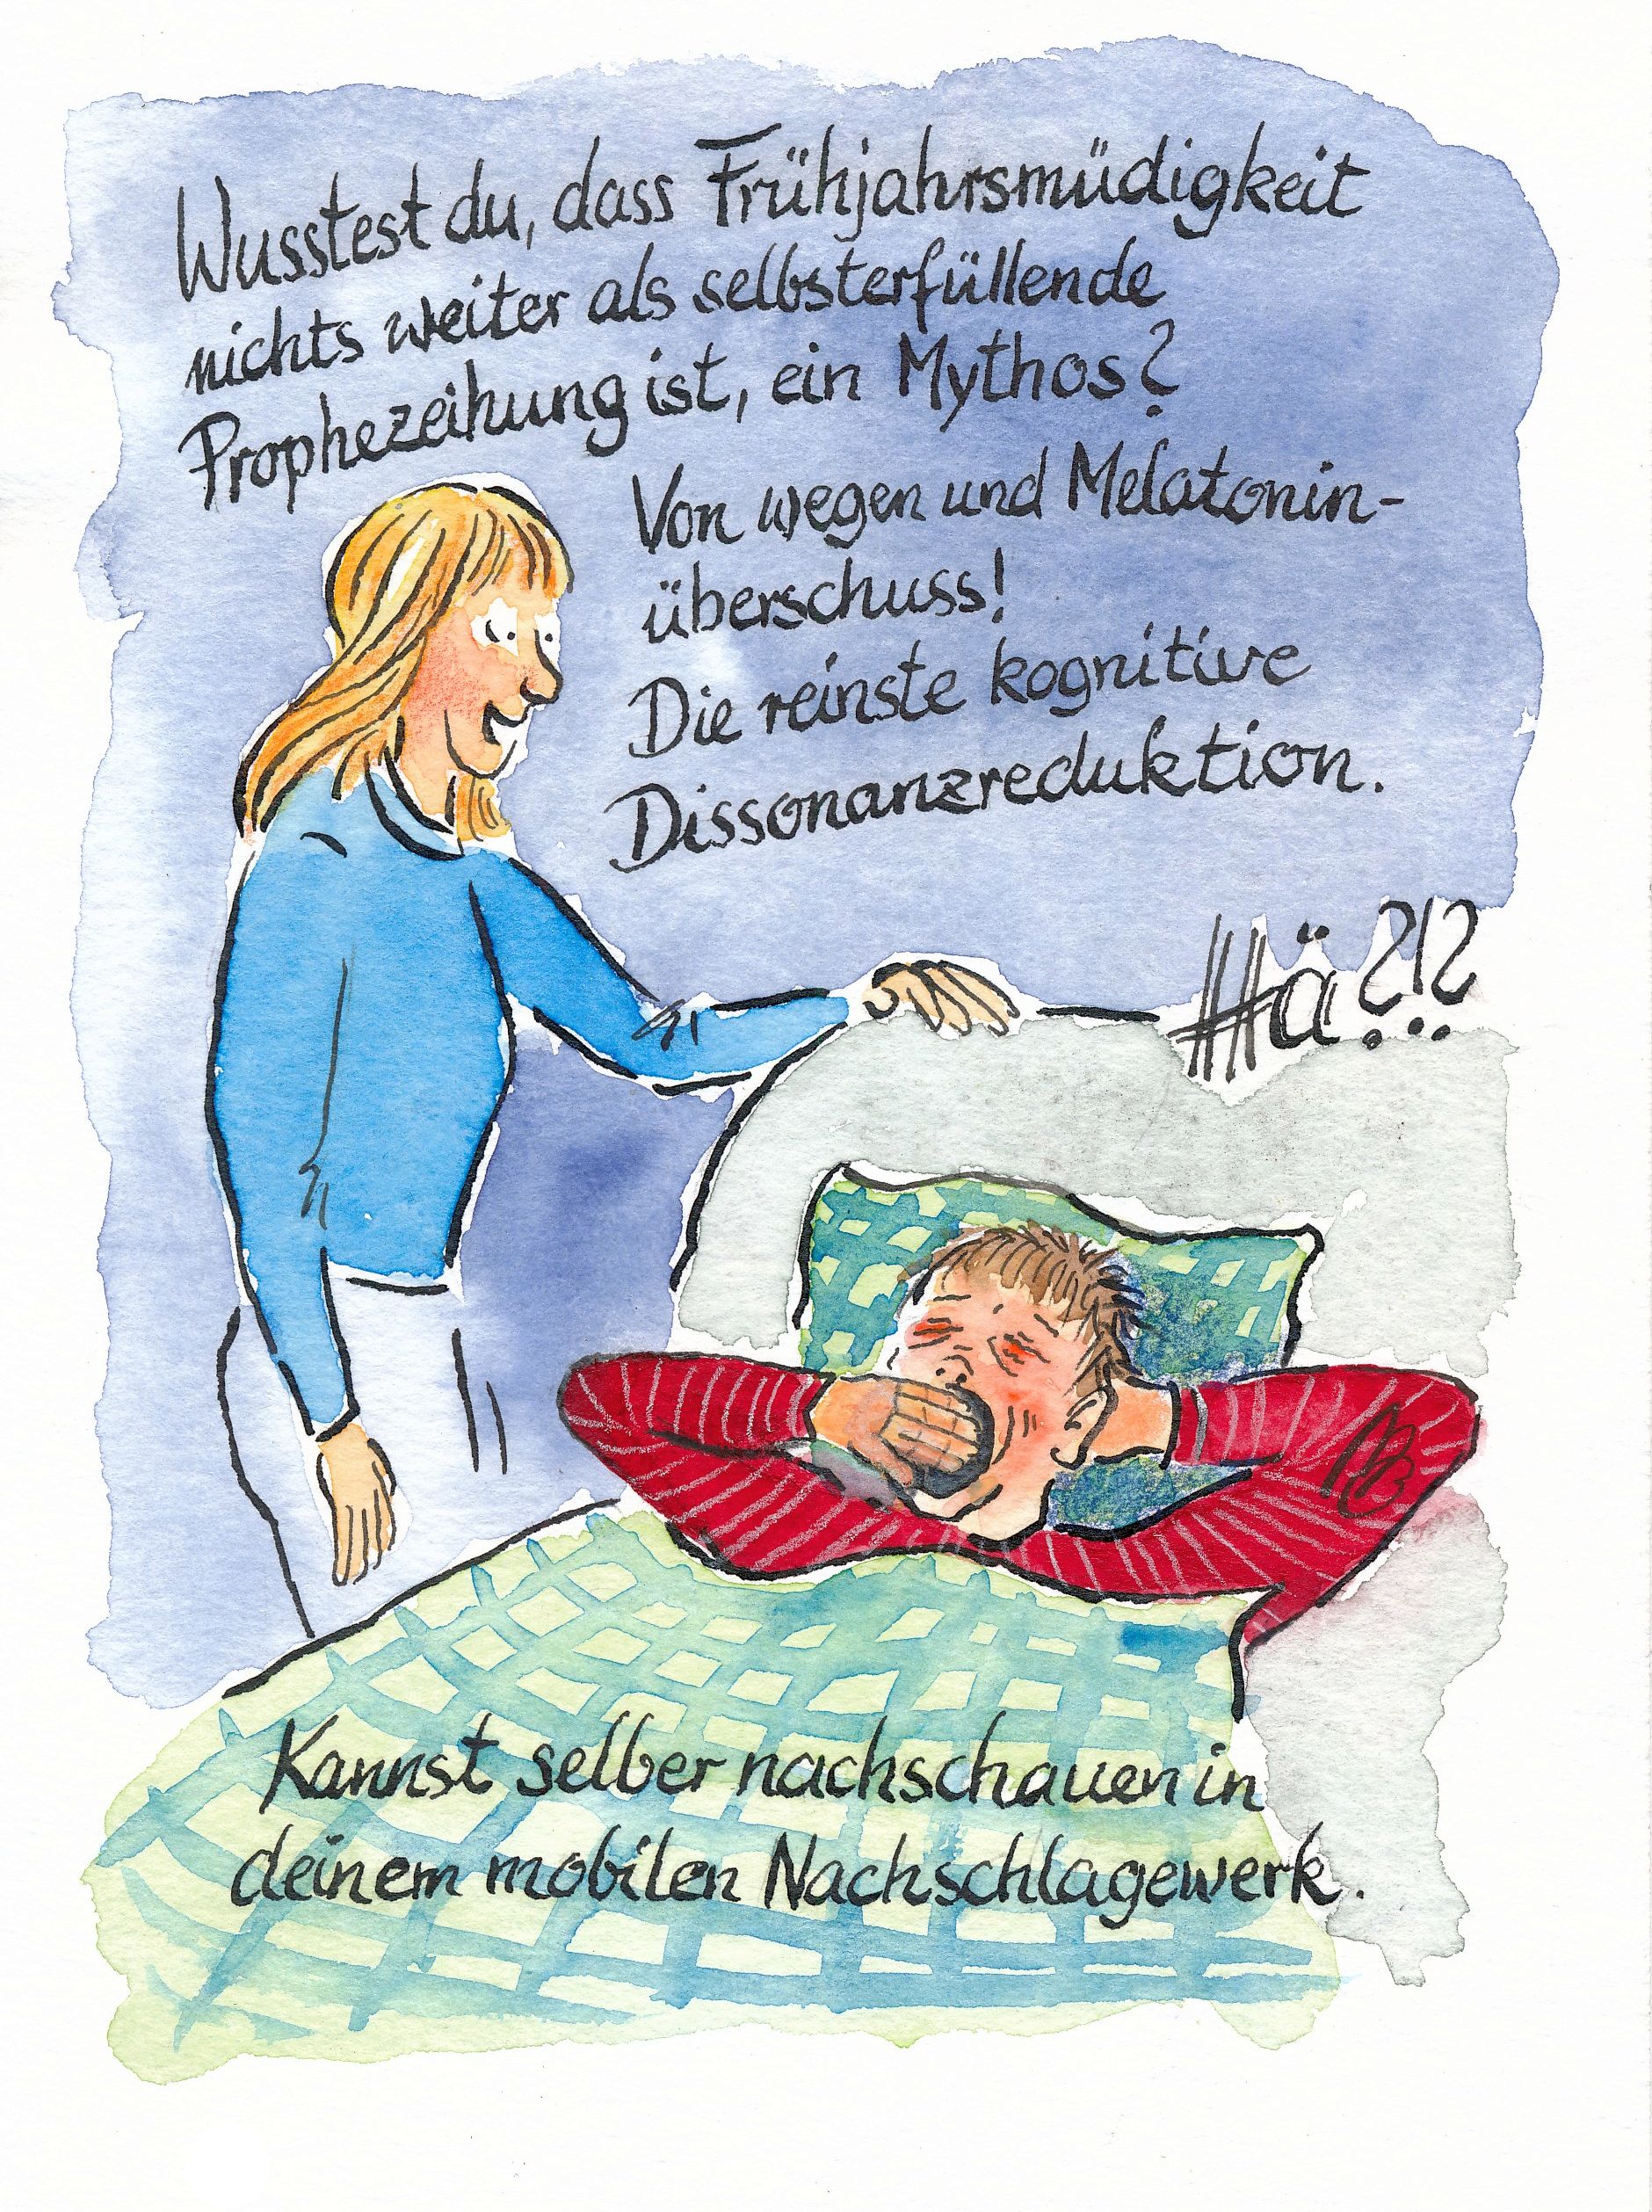 Wusstest du, dass Frühjahrsmüdigkeit
nichts weiter als selbsterfüllende
Prophezeihung ist, ein Mythos?
Von wegen und Melatonin-
überschuss!
Die reinste kognitive
Dissonanzreduktion.
Hä?!?
Kannst selber nachschauen in
deinem mobilen Nachschlagewerk.